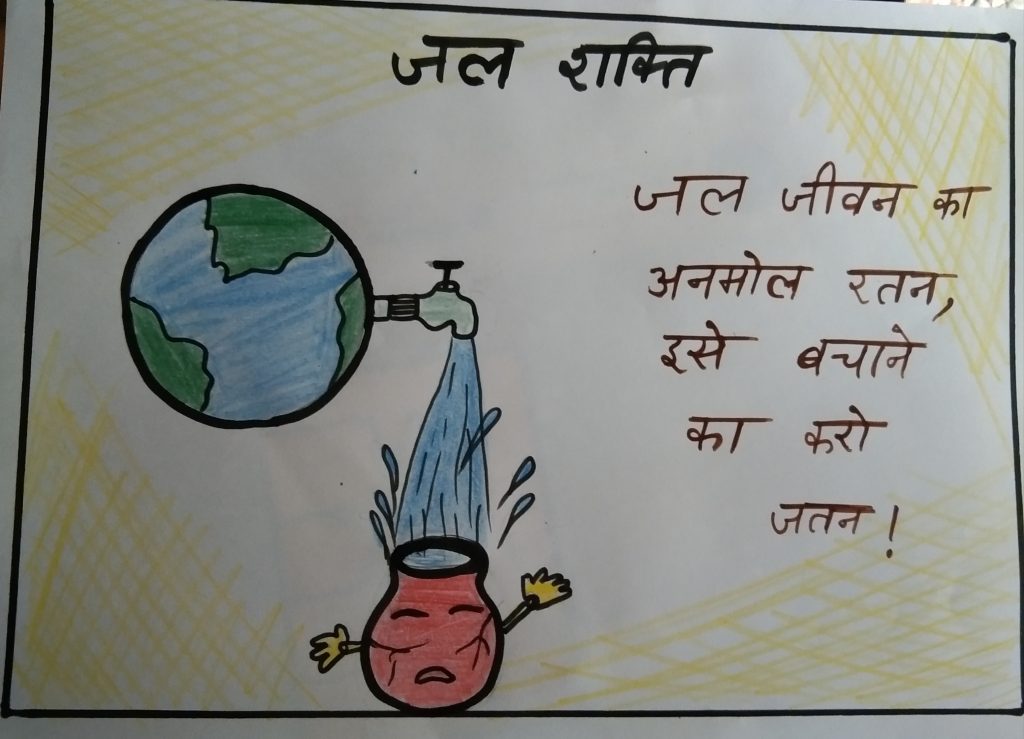 जल शक्ति
जल जीवन का
अनमोल रतन,
इसे बचाने
का करो
जतन!